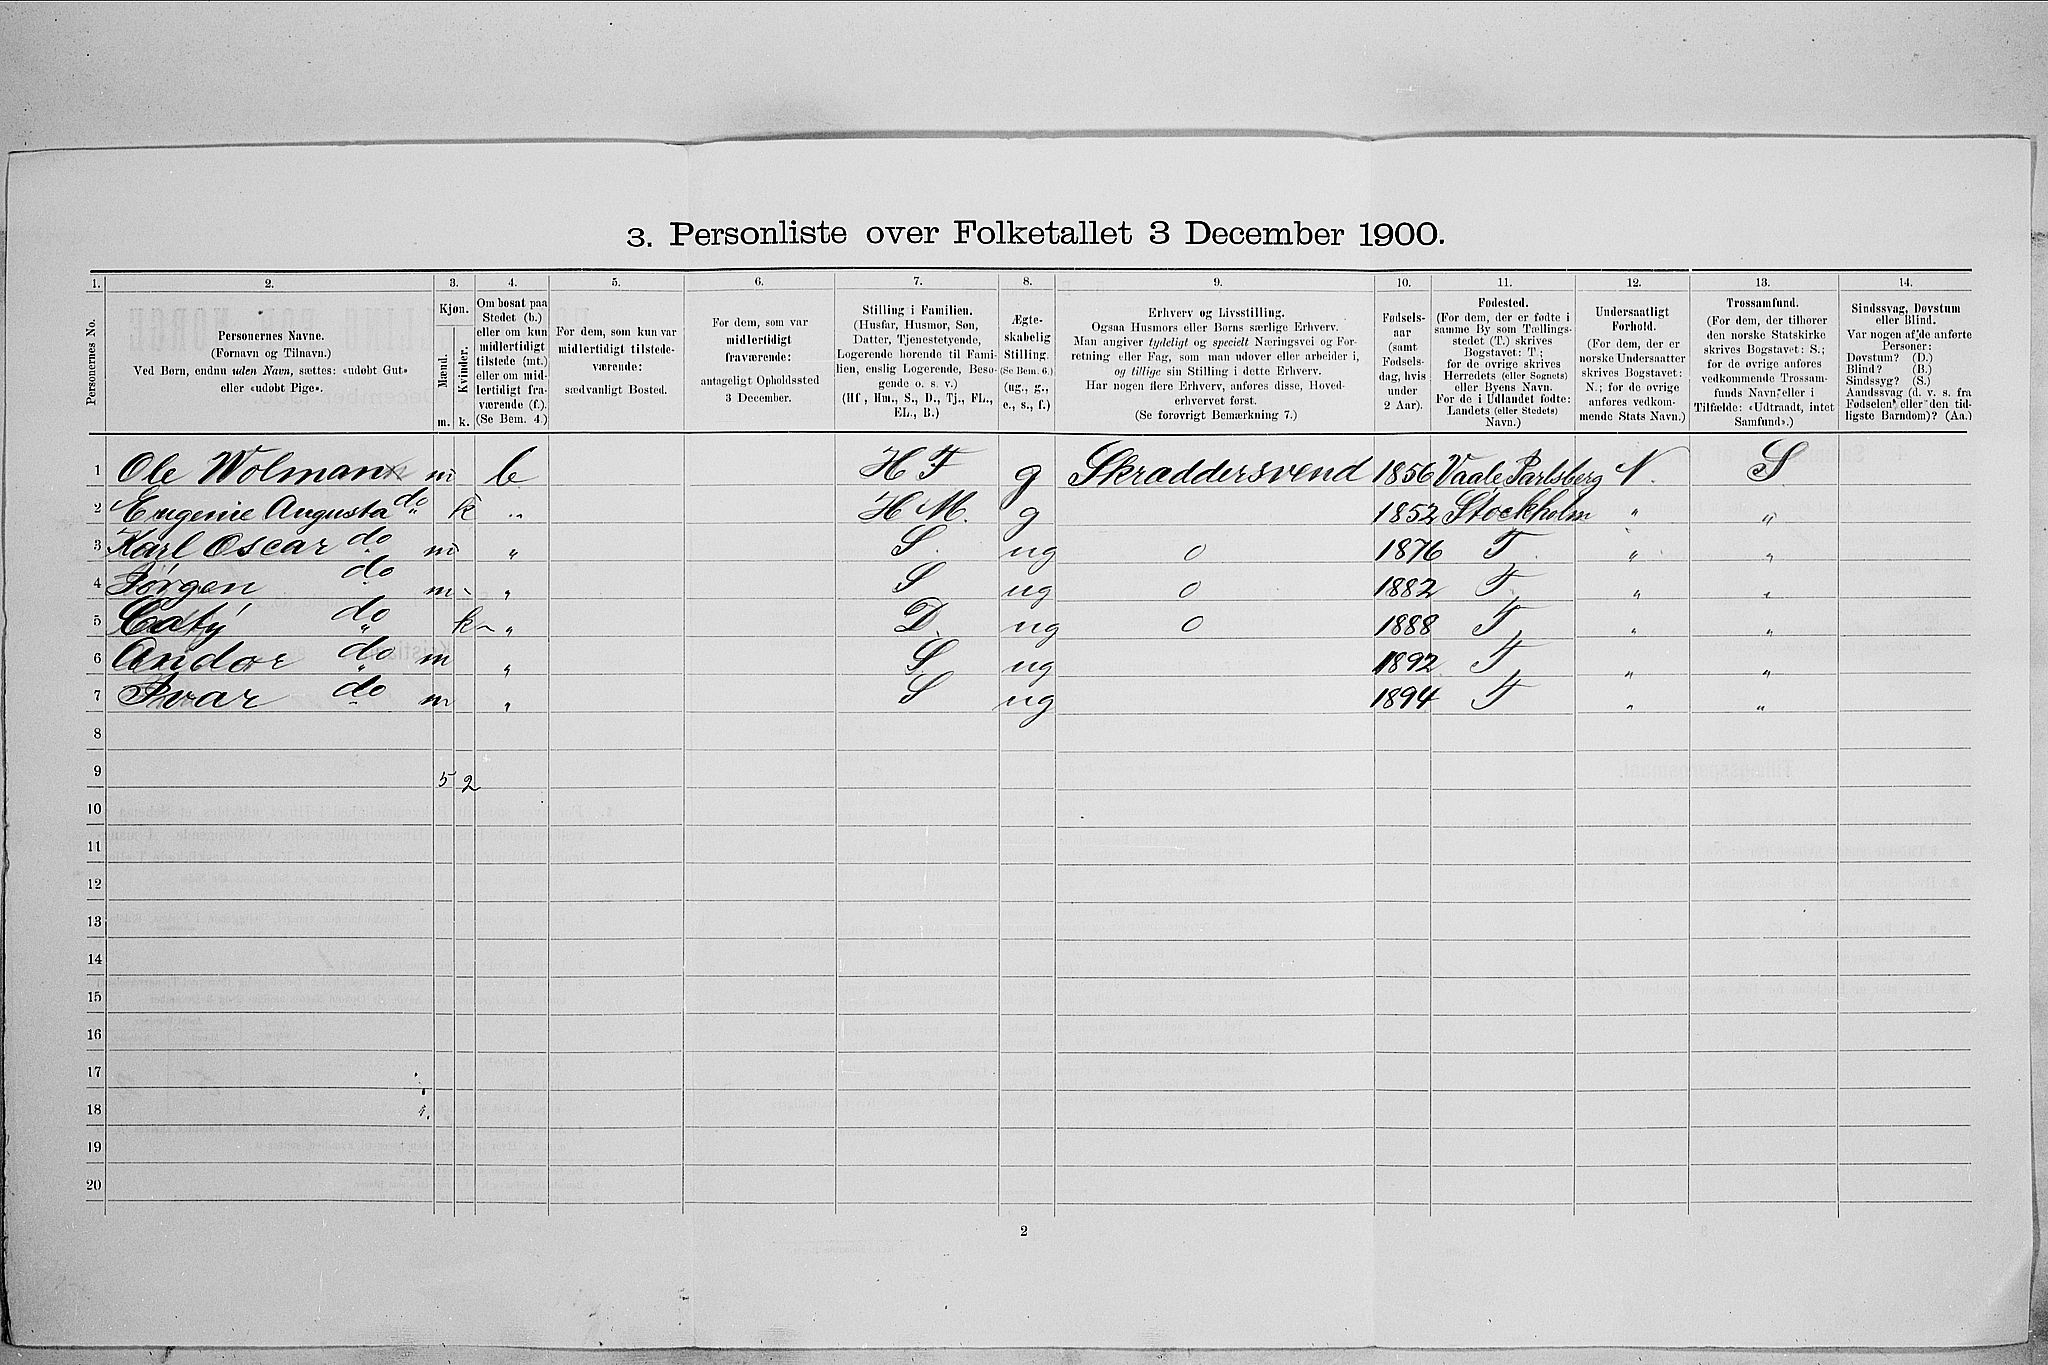 3. Personliste over Folketallet 3 December 1900.
1. 2. 3. 4. 5. 6. 7. 8. 9. 10. 11. 12. 13. 14.
Personernes No.
Personernes Navne.
(Fornavn og Tilnavn.)
Ved Børn, endnu uden Navn, sættes: «udøbt Gut»
eller «udøbt Pige».
Kjøn.
Mænd.
Kvinder.
m. k.
Om bosat paa
Stedet (b.)
eller om kun
midlertidigt
tilstede (mt.)
eller om mid-
lertidigt fra-
værende (f.).
(Se Bem. 4.)
For dem, som kun var
midlertidigt tilstede-
værende:
sædvanligt Bosted.
For dem, som var
midlertidigt
fraværende:
antageligt Opholdssted
3 December.
Stilling i Familien.
(Husfar, Husmor, Søn,
Datter, Tjenestetyende,
Logerende hørende til Fami-
lien, enslig Logerende, Besø-
gende o. s. v.)
(Hf, Hm., S., D., Tj., FL.,
EL., B.)
Ægte-
skabelig
Stilling.
(Se Bem. 6.)
(ug., g.,
e., s., f.)
Erhverv og Livsstilling.
Ogsaa Husmors eller Børns særlige Erhverv.
Man angiver tydeligt og specielt Næringsvei og For-
retning eller Fag, som man udøver eller arbeider i,
og tillige sin Stilling i dette Erhverv.
Har nogen flere Erhverv, anføres disse, Hoved-
erhvervet først.
(Se forøvrigt Bemærkning 7.)
Fødsels-
aar
(samt
Fødsels-
dag, hvis
under
2 Aar).
Fødested.
(For dem, der er fødte i
samme By som Tællings-
stedet (T.) skrives
Bogstavet: T;
for de øvrige skrives
Herredets (eller Sognets)
eller Byens Navn.
For de i Udlandet fødte:
Landets (eller Stedets)
Navn.)
Undersaatligt
Forhold.
(For dem, der er
norske Undersaatter
skrives Bogstavet:
N.; for de øvrige
anføres vedkom-
mende Stats Navn.)
Trossamfund.
(For dem, der tilhører
den norske Statskirke
skrives Bogstavet: S.;
for de øvrige anføres
vedkommende Trossam-
funds Navn, eller i
Tilfælde: «Udtraadt, intet
Samfund».)
Sindssvag, Døvstum
eller Blind.
Var nogen af de anførte
Personer:
Døvstum? (D.)
Blind? (B.)
Sindssyg? (S.)
Aandssvag (d. v. s. fra
Fødselen eller den tid-
ligste Barndom)? (Aa.)
1 Ole Wolmann m b H F g Skraddersvend 1856 Vaale Jarlsberg N. S
2 Eugenie Augusta do k „ H M. g 1852 Stockholm „ „
3 Karl Oscar do m „ S. ug 0 1876 T. „ „
4 Jørgen do m „ S ug 0 1882 T „ „
5 Caty do k „ D ug 0 1888 T „ „
6 Andor do m „ S ug 1892 T „ „
7 Ivar do m „ S ug 1894 T „ „
8
9 5 2
10
11
12
13
14
15
16
17
18
19
20
2